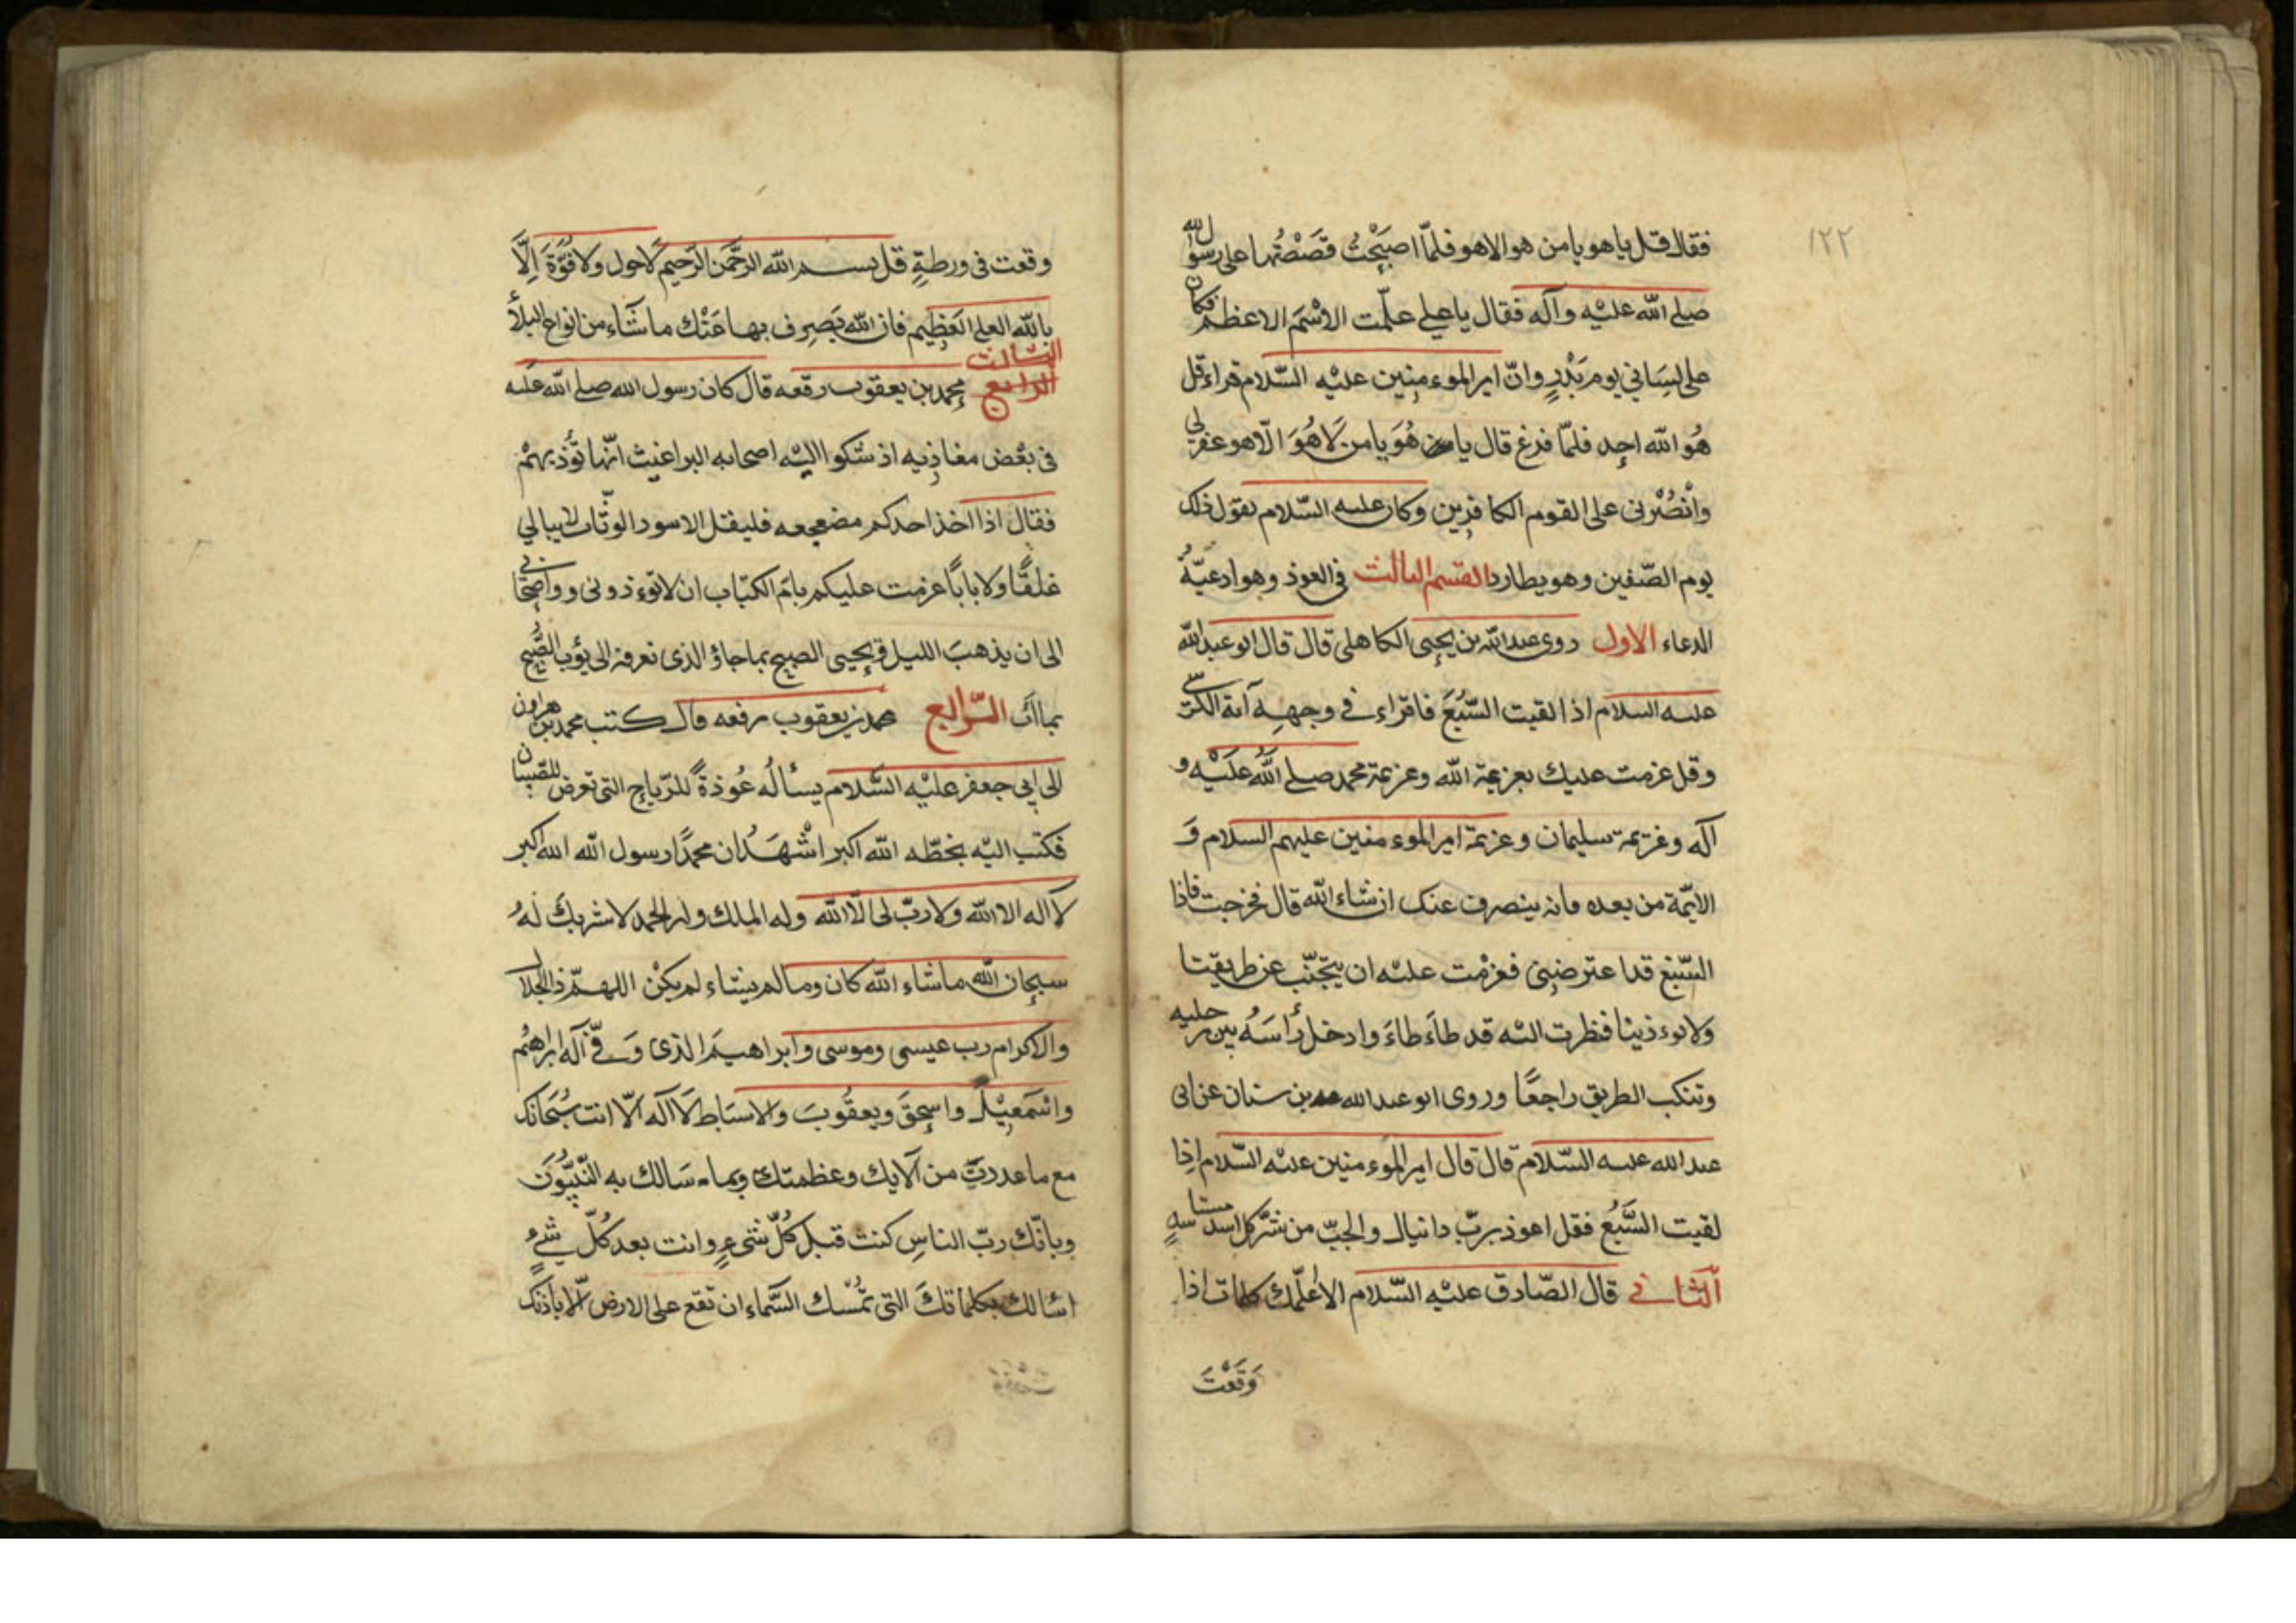 ١٢٢
فقال قل ياهو يا من هو الا هو فلمّا اصبَحْتُ قَصَصْتُها على رسول الله
صلى الله عليْه وآله فقال يا على علّمت الاسْمَ الاعظم فكان
على لِسَانى يوم بَدْرٍ وانّ امير الموءمنِين عليْه السّلام قراء قل
هُوَ الله احد فلمّا فرغ قال يا من هُوَ يا من لَا هُوَ الّا هو غفر لى
وانْصُرْنى على القوم الكافرِين وكان عليه السّلام يقول ذلك
يوم الصّفين وهو يطارد القسم الثالث فى العوذ وهو ادعيّةُ
الدعاء الاول روى عبد الله بن يحيى الكاهلى قال قال ابو عبد الله
عليه السلام اذا لقيت السّبُعَ فاقراء فى وجهِه آية الكرسّى
وقل عزمت عليك بعزيمة الله وعزيمة محمد صلى اللَّه علَيْه و
آله وعزيمة سليمان وعزيمة امير الموءمنين عليهم السلام وَ
الايمّة من بعده فانه ينصرف عنك ان شاء الله قال فخرجت فاذا
السّبُع قد اعترضِنى فعزمْت عليْه ان يتجنّب عن طريقنا
ولا يوءذينا فنظرت اليْه قد طاءَطاءَ وادخل رأسَهُ بين رجليه
وتنكب الطريق راجعًا وروى ابو عبد الله محمد بن سنان عن ابى
عبد الله عليه السّلام قال قال امير الموءمنين عليْه السّلام اذا
لقيت السَّبُع فقل اعوذ بربّ دانيال والجبّ من شرّ كل اسد مستاسدٍ
الثّانى قال الصّادق عليْه السّلام الا اُعلّمك كلمات اذا
وَقَعْتَ
وقعت فى ورطةٍ قل بسم الله الرحَّمن الرّحيم لا حول ولا قوّةَ اِلّا
بالله العلى العَظِيم فان الله يَصرِف بها عَنْك ما شَآء من انواع البلآ
الثالث
الرابع محمد بن يعقوب رفعه قال كان رسول الله صلى الله عليه
فى بعْض مغازِيه اذ شكوا اليْه اصحابه البراغيث انّها تؤذيهمْ
فقال اذا اخذ احدكم مضجعه فليقل الاسود الوثّاب لا يبالى
غلقًا ولا بابًا عزمت عليكم بامّ الكتاب ان لا توءذونى و اصحابى
الى ان يذهبَ الليل ويجيى الصبح بما جاؤ الذى نعرفه الى يؤب الصُّبح
بما اَبَ الرّابع محمد بن يعقوب رفعه قال كتب محمد بن هرون
الى ابى جعفر عليْه السَّلام يسألُه عُوذةً للرّياح التى تعرض للصّبيان
فكتب اليْه بخطّه الله اكبر اشْهَدُ ان محمدًا رسول الله الله اكبر
لا آله الا الله ولا ربّ لى الّا الله وله الملك وله الحمد لا شريكَ لهُ
سبحان الله ما شاء الله كان وما لم يشاء لم يكنْ اللهمّ ذا الجلال
والاكرام رب عيسى وموسى وابراهيمَ الذى وَفّى آله ابراهيْم
واسْمَعيْل واسحقَ ويعقُوبَ والاسبَاط لَا آله الّا انت سُبَحانك
مع ما عددتَ من آلايك وعظمتك وبما سَالك به النَّبيُّونَ
وبانّك ربّ الناسِ كنت قبل كُلّ شىءٍ وانت بعد كُلّ شىءٍ
اسالك بكلماتكَ التى تمْسك السَّماء ان تقع على الارض الّا باذنك